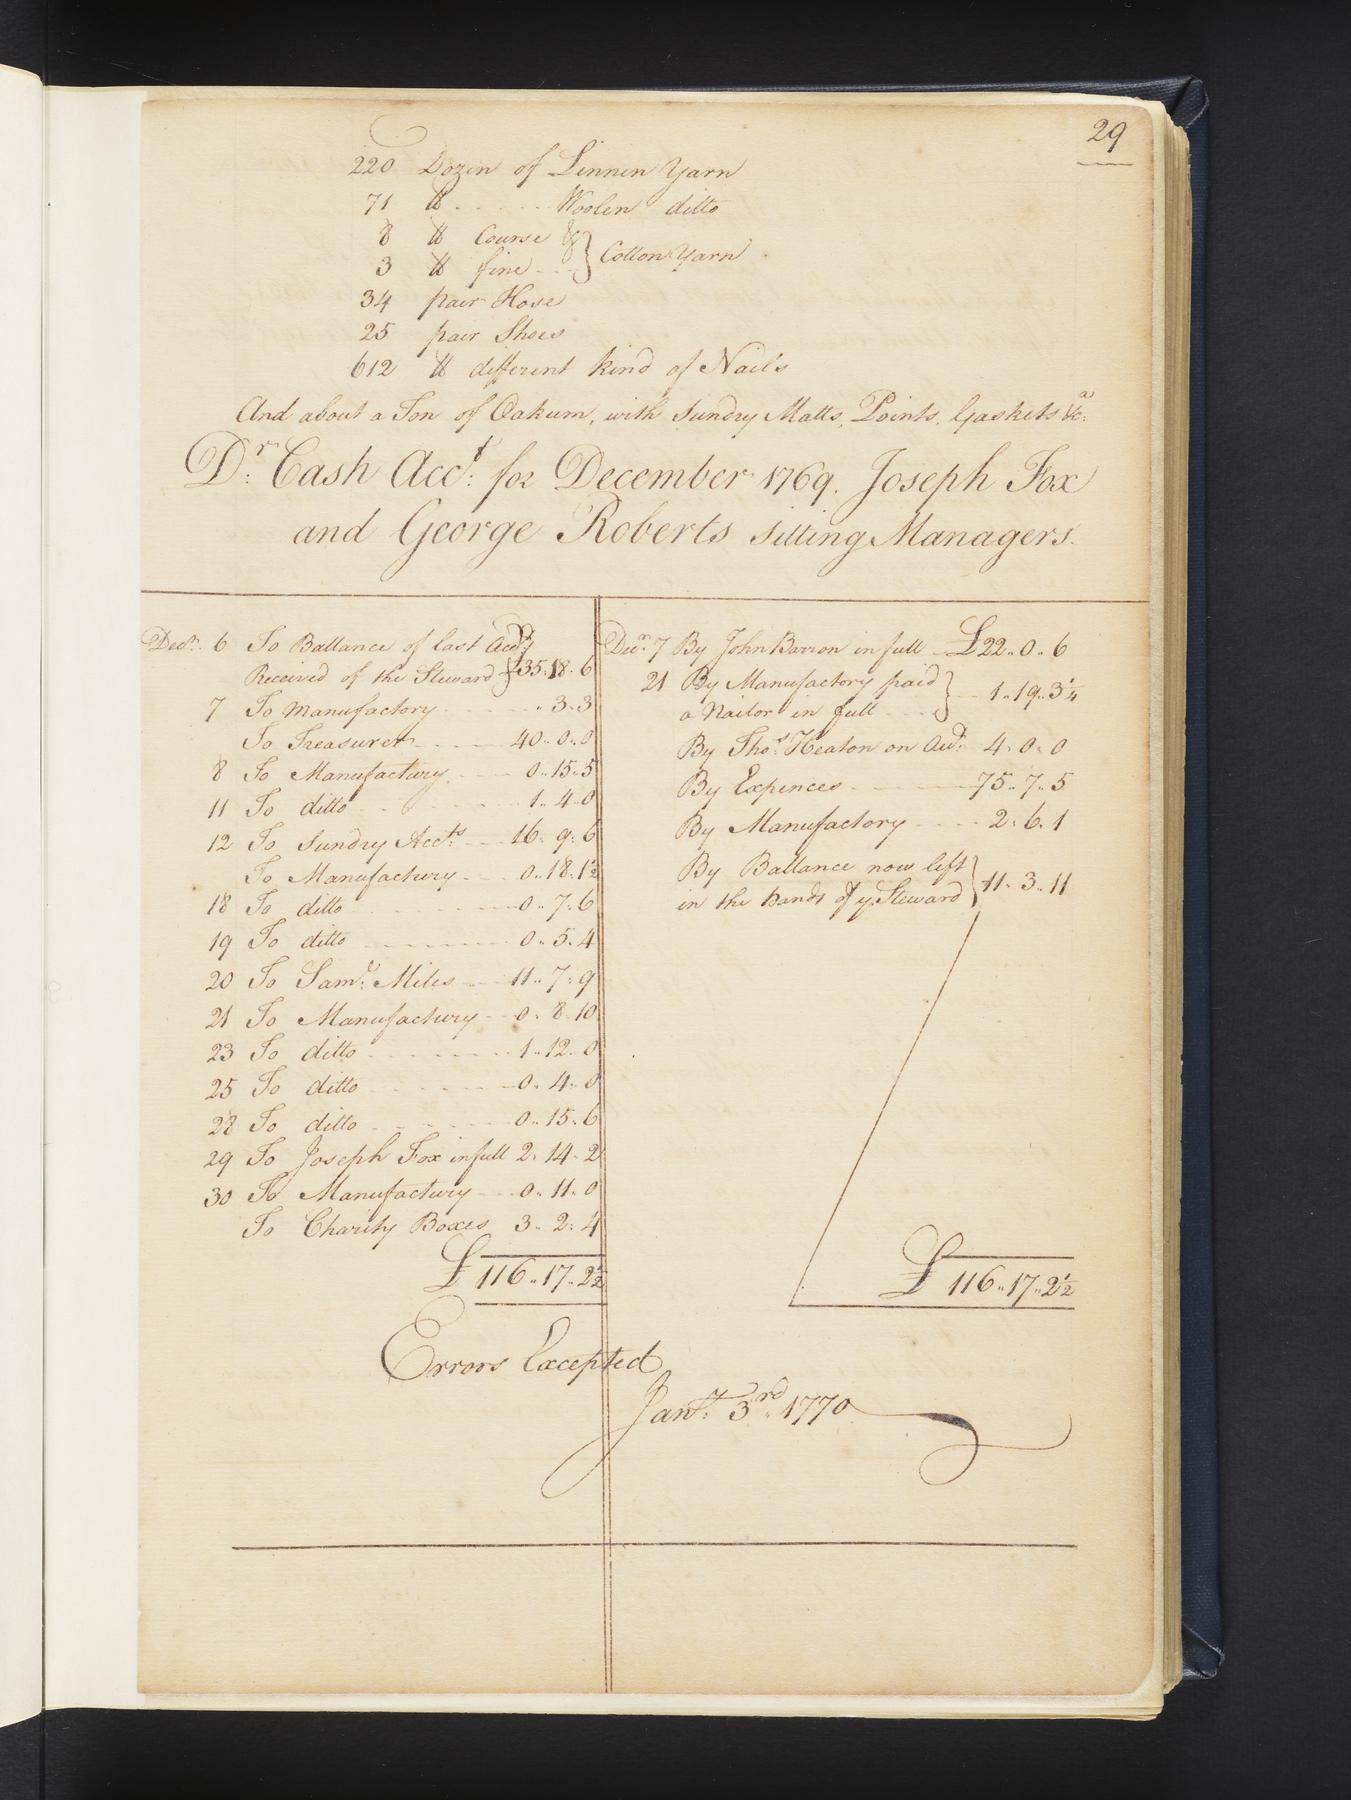 29
220 Dozen of Linnen Yarn
71 ℔ ...... Woolen ditto
8 ℔ Course & } Cotton Yarn
3 ℔ fine
34 pair Hose
25 pair Shoes
612 ℔ different kind of Nails
And about a Ton of Oakum, with Sundry Matts, Points, Gaskets &c.a
D.r Cash Acc.t for December 1769. Joseph Fox
and George Roberts Sitting Managers.
Decr. 6 To Ballance of last Acct.
Received of the Steward } £35.18.6
7 To Manufactory .. 3..3
To Treasurer 40..0..0
8 To Manufactury 0..15..5
11 To ditto 1..4..0
12 To Sundry Accts. 16..9..6
To Manufactury 0..18..1½
18 To ditto 0..7..6
19 To ditto 0..5..4
20 To Saml. Miles 11..7..9
21 To Manufactury 0..8..10
23 To ditto 1..12..0
25 To ditto 0..4..0
28 To ditto 0..15..6
29 To Joseph Fox in full 2..14..2
30 To Manufactury 0..11..0
To Charity Boxes 3..2..4
£ 116..17..2½
Decr. 7 By John Barron in full £22..0..6
21 By Manufactory paid
a Nailor in full } 1..19..3¼
By Thos. Heaton on Acct. 4..0..0
By Expences 75..7..5
By Manufactory 2..6..1
By Ballance now left
in the hands of ye. Steward } 11..3..11
£ 116..17..2½
Errors Excepted
Jany. 3rd. 1770